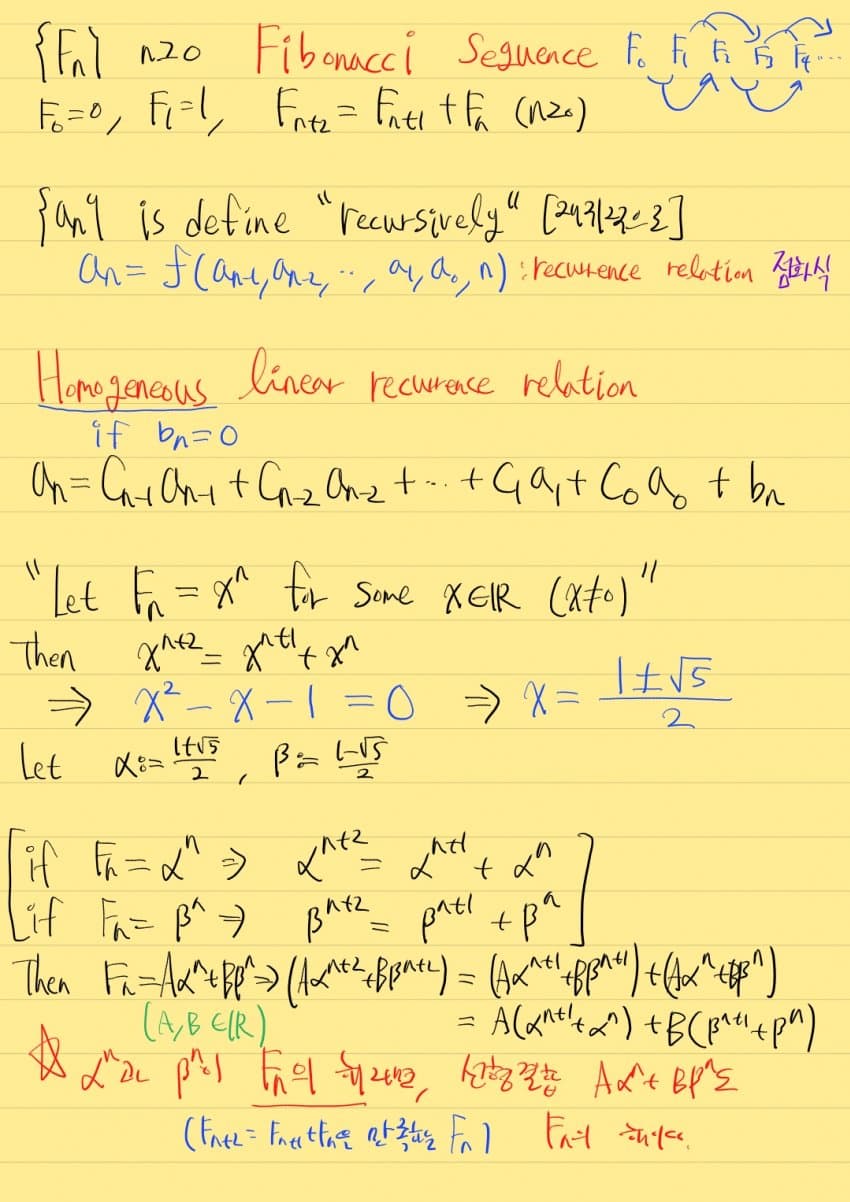 {Fn} n≥0 Fibonacci Sequence F₀ F₁ F₂ F₃ F₄ ...
F₀=0, F₁=1, Fₙ₊₂ = Fₙ₊₁ + Fₙ (n≥0)
{aₙ} is define "recursively" [재귀적으로]
aₙ = f(aₙ₋₁, aₙ₋₂, ‥, a₁, a₀, n) : recurrence relation 점화식
Homogeneous linear recurrence relation
if bₙ=0
aₙ = Cₙ₋₁aₙ₋₁ + Cₙ₋₂aₙ₋₂ + ‥ + C₁a₁ + C₀a₀ + bₙ
"Let Fₙ = xⁿ for some x∈ℝ (x≠0)"
Then xⁿ⁺² = xⁿ⁺¹ + xⁿ
⇒ x² - x - 1 = 0 ⇒ x = (1±√5)/2
Let α := (1+√5)/2 , β := (1-√5)/2
[if Fₙ = αⁿ ⇒ αⁿ⁺² = αⁿ⁺¹ + αⁿ
if Fₙ = βⁿ ⇒ βⁿ⁺² = βⁿ⁺¹ + βⁿ]
Then Fₙ=Aαⁿ+Bβⁿ ⇒ (Aαⁿ⁺²+Bβⁿ⁺²) = (Aαⁿ⁺¹+Bβⁿ⁺¹)+(Aαⁿ+Bβⁿ)
(A,B∈ℝ) = A(αⁿ⁺¹+αⁿ)+B(βⁿ⁺¹+βⁿ)
☆ αⁿ과 βⁿ이 Fₙ의 해라면, 선형결합 Aαⁿ+Bβⁿ도
(Fₙ₊₂=Fₙ₊₁+Fₙ을 만족하는 Fₙ) Fₙ의 해이다.